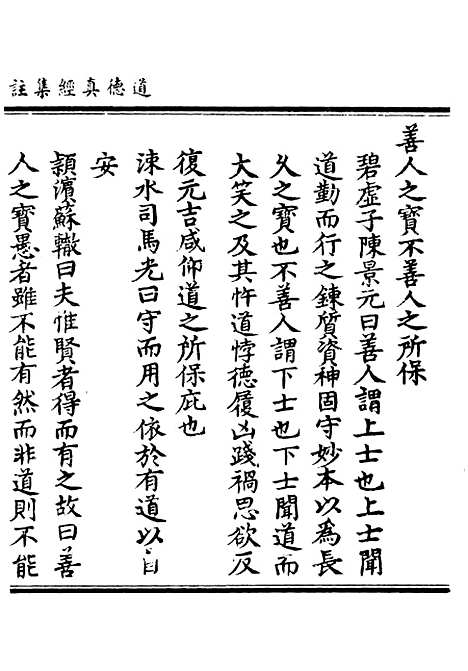 道德真經集註
善人之寶不善人之所保
碧虛子陳景元曰善人謂上士也上士聞
道勤而行之鍊質資神固守妙本以為長
久之寶也不善人謂下士也下士聞道而
大笑之及其忤道悖德履凶踐禍思欲反
復元吉咸仰道之所保庇也
涑水司馬光曰守而用之依於有道以自
安
潁濱蘇轍曰夫惟賢者得而有之故曰善
人之寶愚者雖不能有然而非道則不能